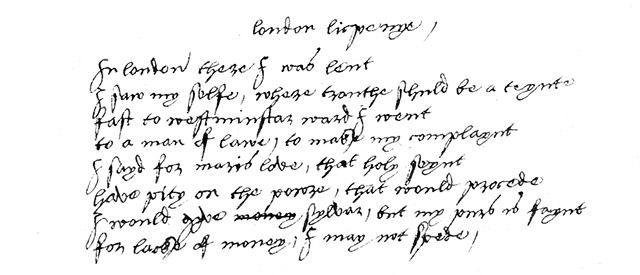 london licpenye /
In london there I was lent
I saw my selfe, where trouthe shuld be a teynte
fast to westminstar ward I went
to a man of lawe, to make my complaynt
I sayd for maris love, that holy seynt
have pity on the powre, that would procede
I would gyve money sylvar, but my purs is faynt
for lacke of money, I may not spede,